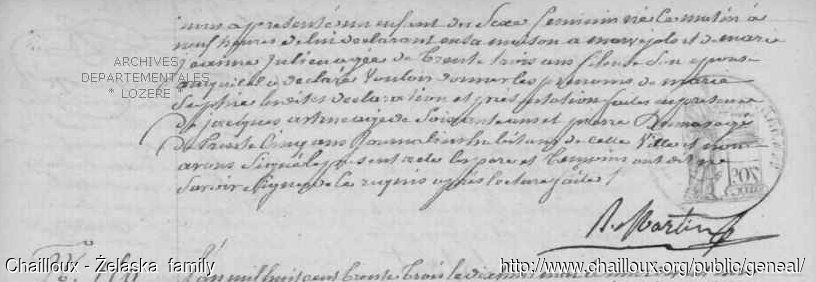 nous a présenté un enfant du Sexe feminin née le matin à
neuf heures de lui declarant en sa maison a marvejols et de marie
jeanne Julien agée de trente trois ans fileuse son epouse
auquel il a declaré Vouloir donner les prenoms de marie
Sophie Lesdites declaration et présentation faites en presence
de jacques agé de Soixante ans et pierre agé
de trente Cinq ans Journaliers habitans de cette Ville et nous
avons Signé le present acte les pere et temoins ont dit ne
Savoir Signer de ce requis après lecture faite /
ARCHIVES
DEPARTEMENTALES
* LOZERE
Martin
L'an mil huit cent trente trois le
Chailloux - Želaska family
http://www.chailloux.org/public/geneal/